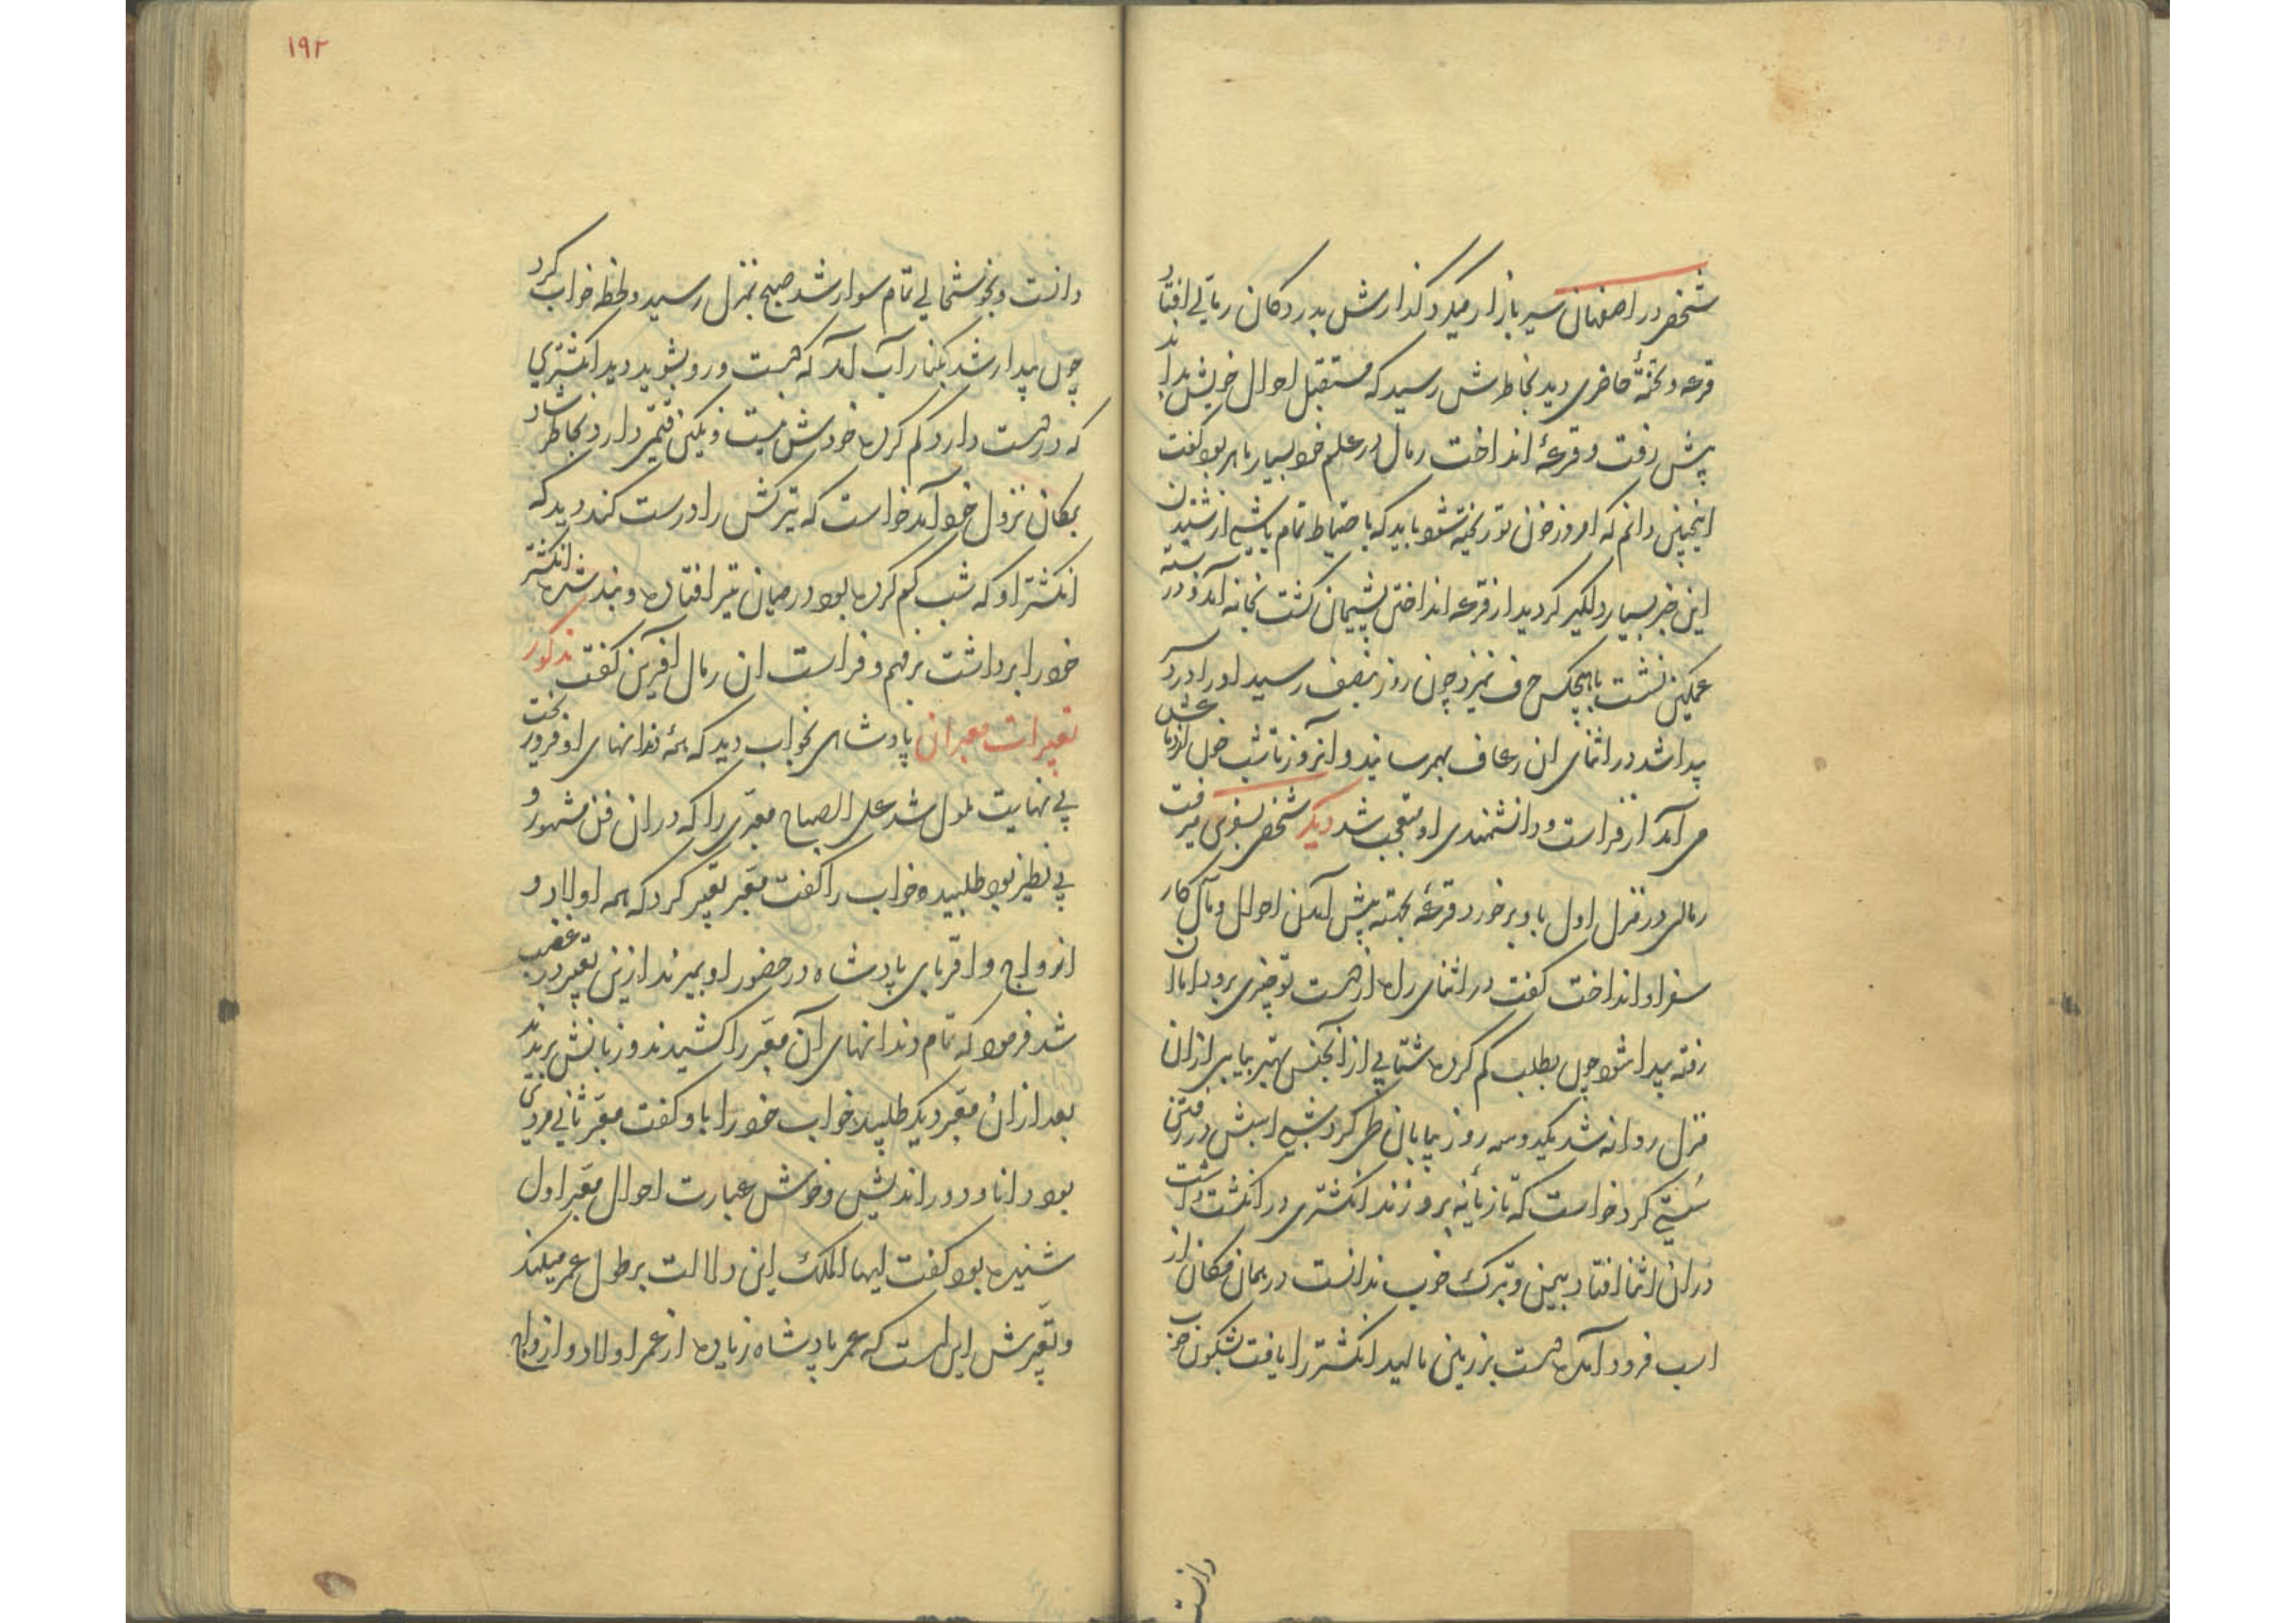 شخصی در اصفهان سیر بازار میکرد گذارش بدر دکان رمالی افتاد
قرعه و تختهٔ حاضری دید بخاطرش رسید که مستقبل احوال خویش بداند
پیش رفت و قرعهٔ انداخت رمال در علم خود بسیار ماهر بود گفت
اینچنین دانم که امروز خون تو ریخته شود باید که باحتیاط تمام باشی از شنیدن
این خبر بسیار دلگیر گردید از قرعه انداختن پشیمان گشت بخانه آمد و در بسته
غمگین نشست با هیچکس حرف نمیزد چون روز بنصف رسید او را درد سر
پیدا شد در اثنای ان رعاف بهمرسانید و انروز تا شب خون از دماغش
می آمد از فراست و دانشمندی او متعجب شد دیگر شخصی بسفری میرفت
رمالی در منزل اول باو برخورد قرعهٔ بجهته پیش آمدن احوال و مآل کار
سفر او انداخت گفت در اثنای راه از دست تو چیزی برود اما ان
رفته پیدا شود چون بطلب گم کرده شتابی از انجنس بهتر بیابی از ان
منزل روانه شد یکدو سه روز بیابان طی کرد شبی اسبش در رفتن
سستی کرد خواست که تازیانه برو زند انگشتری در انگشت داشت
دران اثنا افتاد بیمن و تبرک خوب ندانست در همان مکان از
اسب فرود آمده دست بر زمین مالید انگشتر را یافت شگون خوب
دانست
١٩٢
دانست و بخوشحالی تمام سوار شد صبح بمنزل رسید و لحظه خواب کرد
چون بیدار شد بکنار آب آمد که دست و رو بشوید دید انگشتری
که در دست دارد گم کرده خودش نیست و نگین قیمتی دارد بخاطر شاد
بمکان نزول خود آمد خواست که تیرکش را درست کند دید که
انگشتر او که شب گم کرده بود در میان تیر افتاده و بند شده انگشتر
خود را برداشت بر فهم و فراست ان رمال آفرین گفت مذکور
تعبیرات معبران پادشاهی بخواب دید که همهٔ دندانهای او فرو ریخت
بی نهایت ملول شد علی الصباح معبری را که در ان فن مشهور و
بی نظیر بود طلبیده خواب را گفت معبر تعبیر کرد که همه اولاد و
ازواج و اقربای پادشاه در حضور او بمیرند ازین تعبیر در غضب
شد فرمود که تمام دندانهای آن معبر را کشیدند و زبانش بریدند
بعد از ان معبر دیگر طلبید خواب خود را باو گفت معبر ثانی مردی
بود دانا و دور اندیش و خوش عبارت احوال معبر اول
شنیده بود گفت ایها الملک این دلالت بر طول عمر میکند
و تعبیرش این است که عمر پادشاه زیاده از عمر اولاد و ازواج